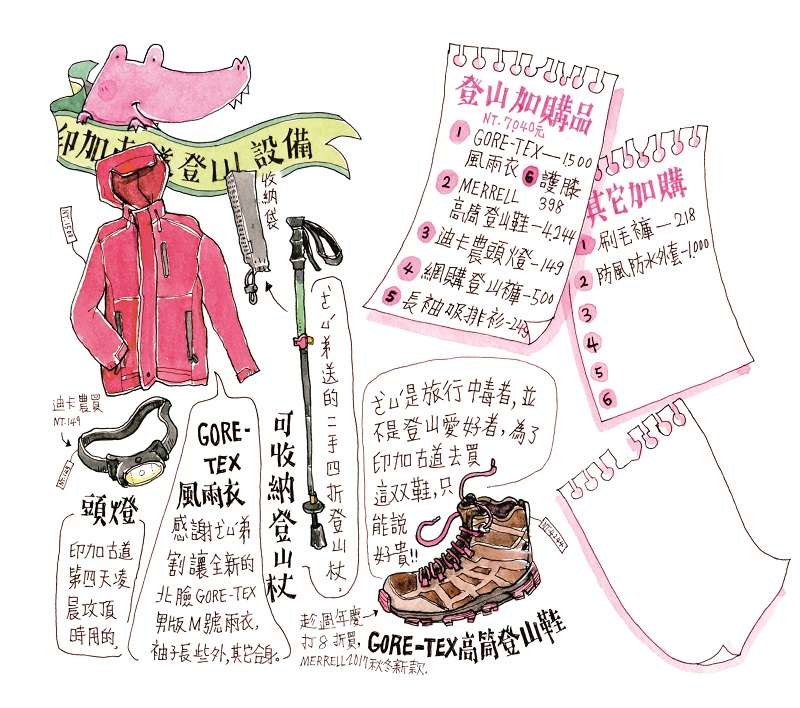 印加古道登山設備
收納袋
NT.1500
登山加購品
NT.7040元
1 GORE-TEX—1500
風雨衣
6 護膝
398
2 MERRELL
高筒登山鞋—4,244
3 迪卡農頭燈—149
4 網購登山褲—500
5 長袖吸排衫—249
其它加購
1 刷毛褲—218
2 防風防水外套—1,000
3
4
5
6
迪卡農買
NT.149
NT.149
頭燈
印加古道
第四天凌
晨攻頂
時用的。
GORE-
TEX
風雨衣
感謝ㄜㄩˊ弟
割讓全新的
北臉GORE-TEX
男版M號雨衣,
袖子長些外,其它合身。
可收納登山杖
ㄜㄩˊ弟送的二手四折登山杖。
ㄜㄩˊ是旅行中毒者,並
不是登山愛好者,為了
印加古道去買
這双鞋,只
能說
好貴!!
NT.4,244
趁週年慶
打8折買,
MERRELL2017秋冬新款.
GORE-TEX高筒登山鞋